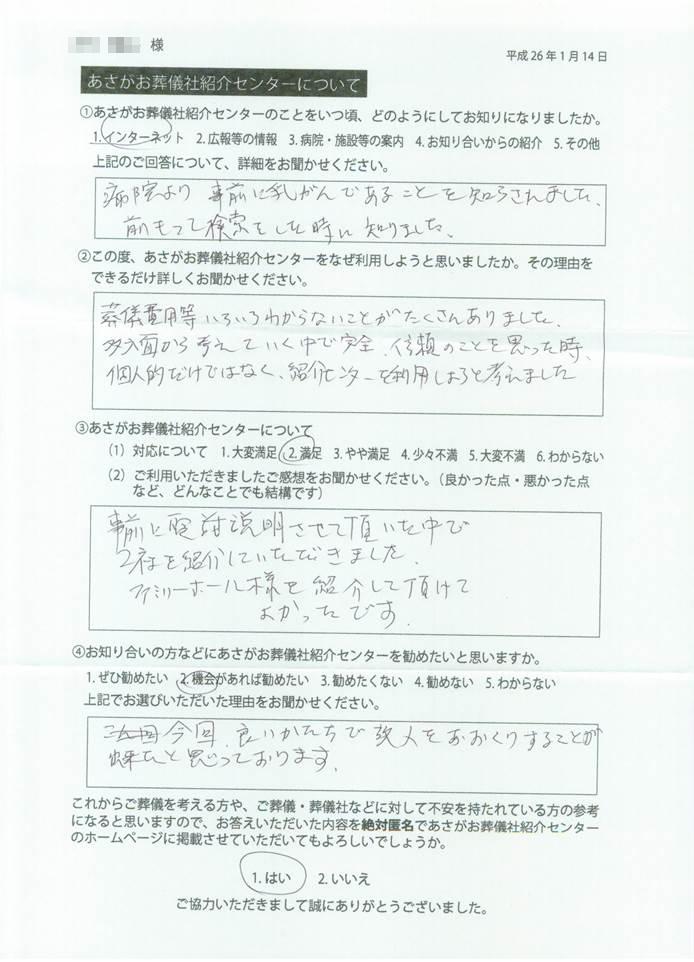 様
平成26年1月14日
あさがお葬儀社紹介センターについて
①あさがお葬儀社紹介センターのことをいつ頃、どのようにしてお知りになりましたか。
1.インターネット 2.広報等の情報 3.病院・施設等の案内 4.お知り合いからの紹介 5.その他
上記のご回答について、詳細をお聞かせください。
病院より 事前に乳がんであることを知らされました、
前もって検索をした時に知りました。
②この度、あさがお葬儀社紹介センターをなぜ利用しようと思いましたか。その理由を
できるだけ詳しくお聞かせください。
葬儀費用等いろいろわからないことがたくさんありました、
多方面から考えていく中で安全、信頼のことを思った時、
個人的だけではなく、紹介センターを利用しようと考えました
③あさがお葬儀社紹介センターについて
(1) 対応について 1.大変満足 2.満足 3.やや満足 4.少々不満 5.大変不満 6.わからない
(2) ご利用いただきましたご感想をお聞かせください。(良かった点・悪かった点
など、どんなことでも結構です)
事前に 説明させて頂いた中で
2社を紹介していただきました、
ファミリーホール様を紹介して頂けて
よかったです。
④お知り合いの方などにあさがお葬儀社紹介センターを勧めたいと思いますか。
1.ぜひ勧めたい 2.機会があれば勧めたい 3.勧めたくない 4.勧めない 5.わからない
上記でお選びいただいた理由をお聞かせください。
今回、良いかたちで故人をおおくりすることが
出来たと思っております。
これからご葬儀を考える方や、ご葬儀・葬儀社などに対して不安を持たれている方の参考
になると思いますので、お答えいただいた内容を絶対匿名であさがお葬儀社紹介センター
のホームページに掲載させていただいてもよろしいでしょうか。
1.はい 2.いいえ
ご協力いただきまして誠にありがとうございました。